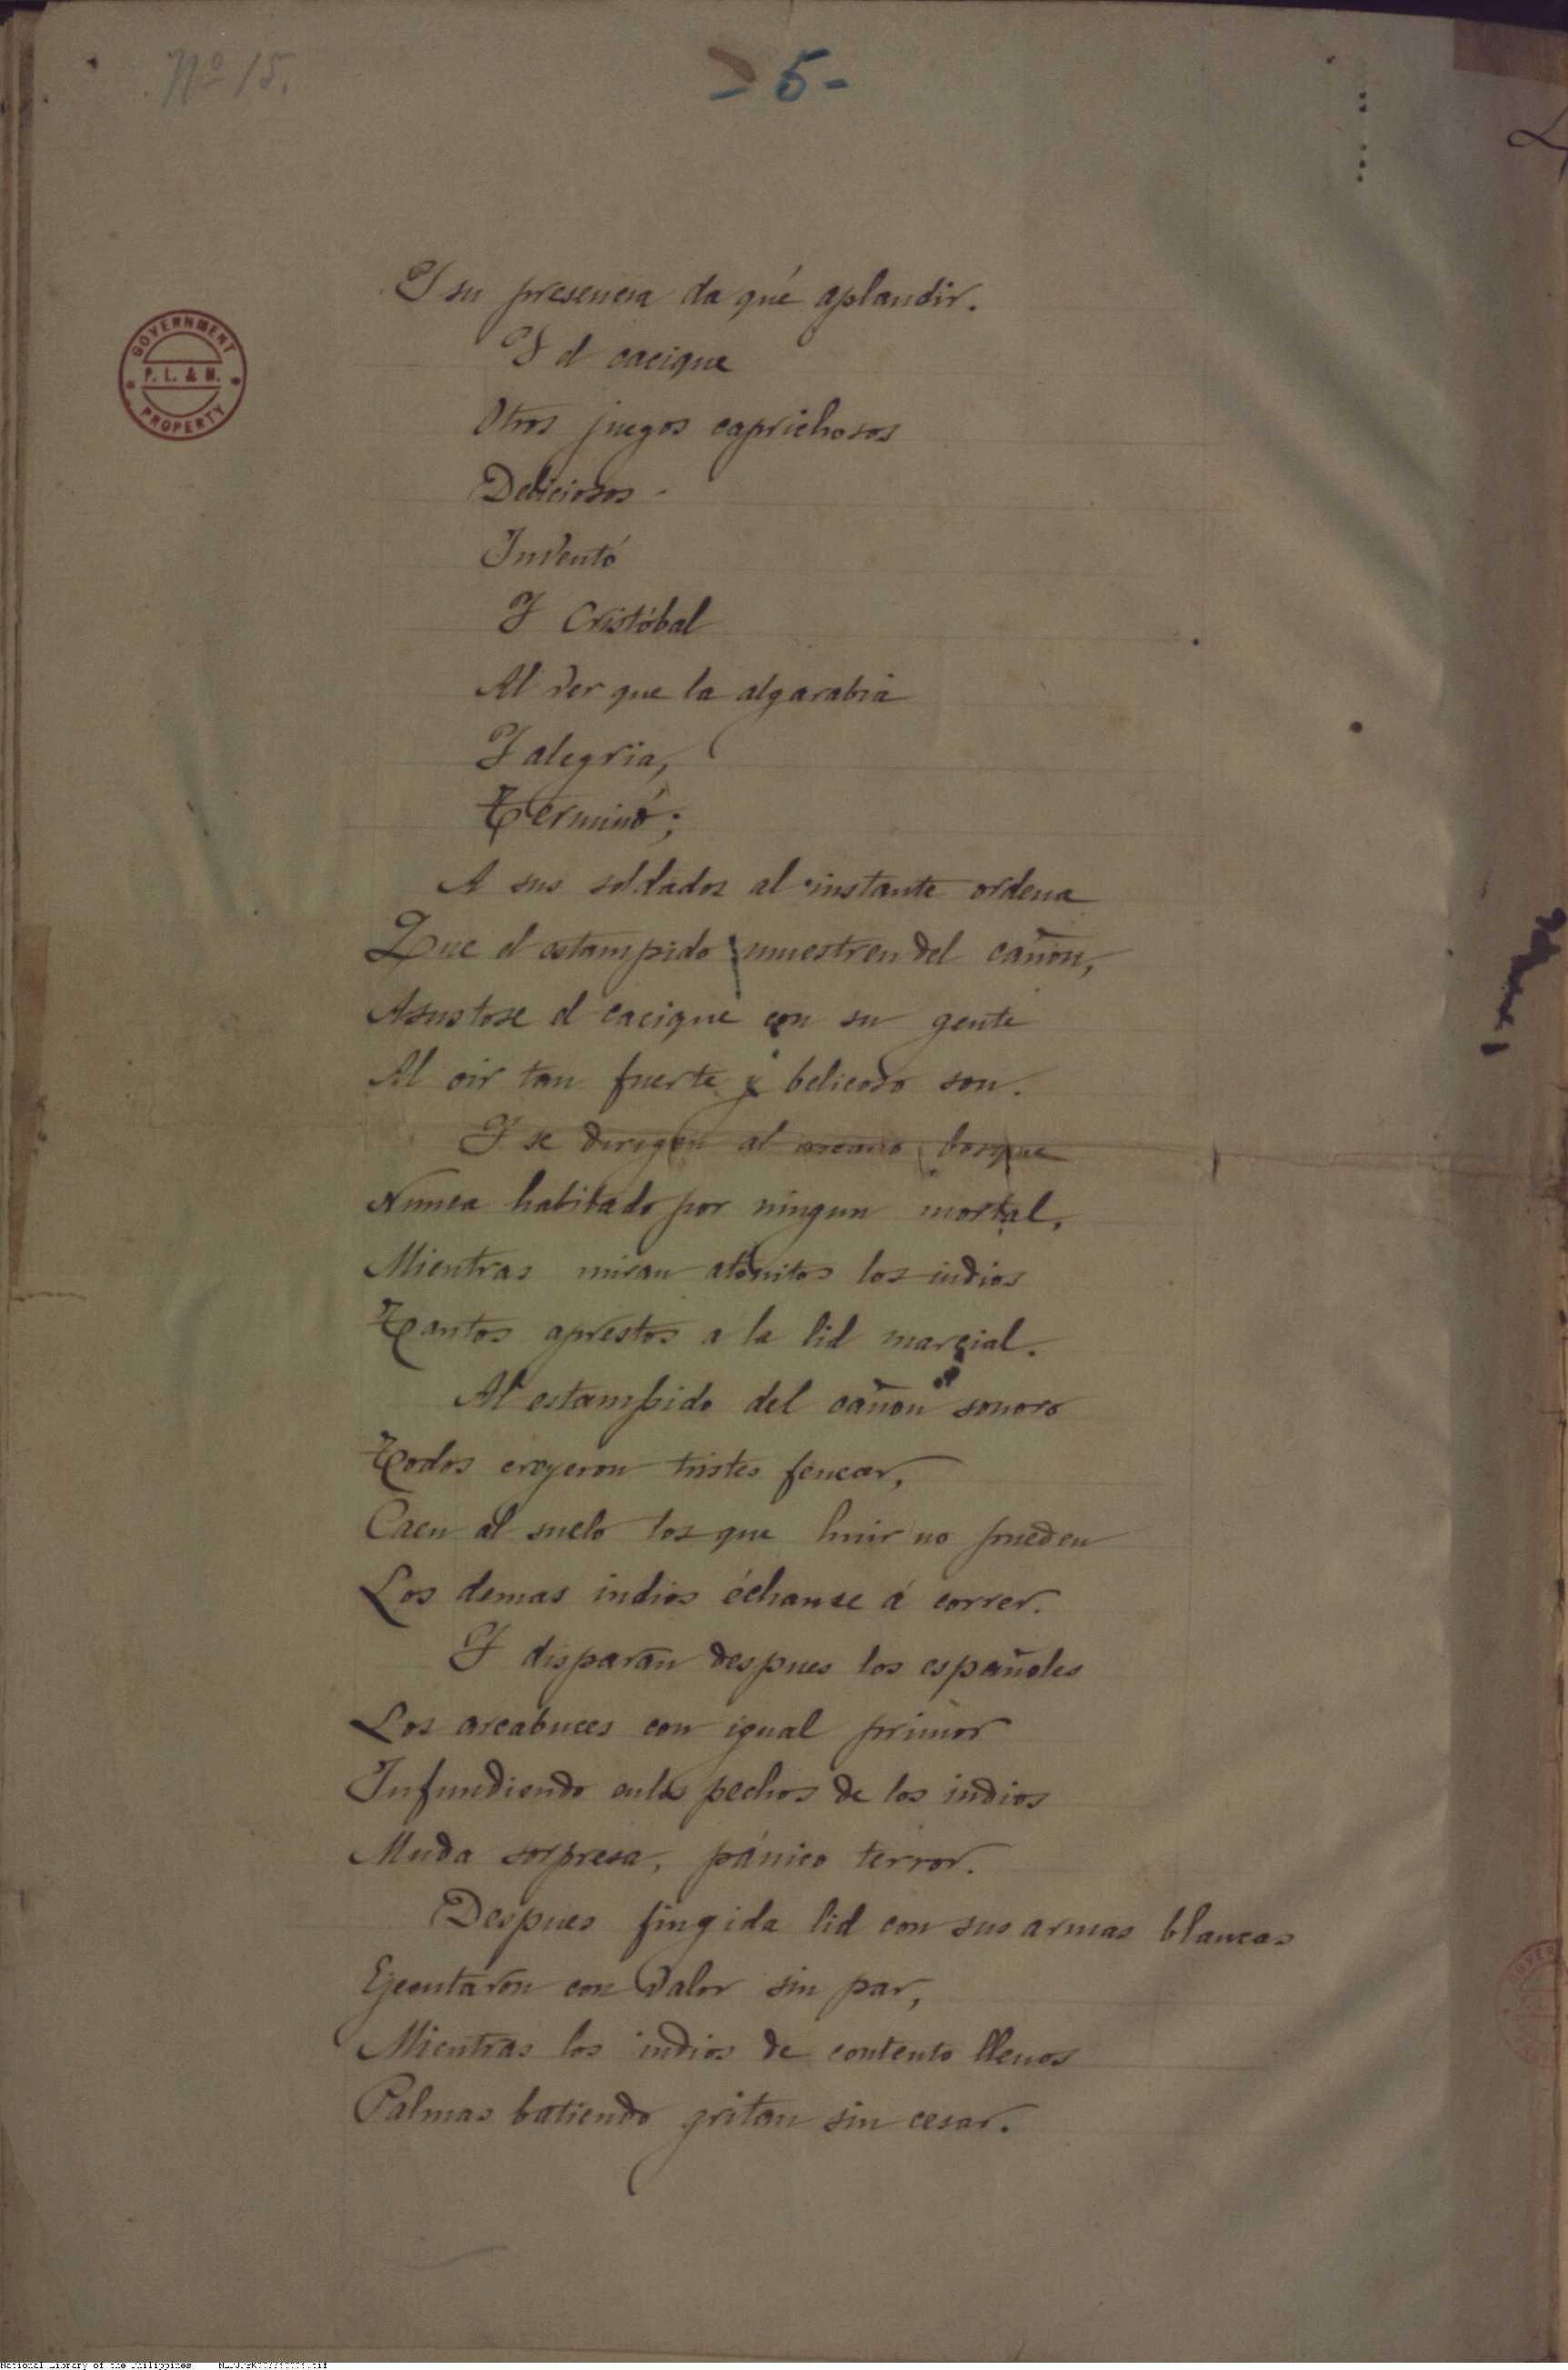 Nº 15.
- 5 -
GOVERNMENT
P. L. & M.
PROPERTY
Y su presencia da qué aplaudir.
Y el cacique
Otros juegos caprichosos
Deliciosos -
Inventó
Y Cristóbal
Al ver que la algarabia
Y alegria,
Terminó;
A sus soldados al instante ordena
Que el estampido muestren del cañon,
Asustose el cacique con su gente
Al oir tan fuerte y belicoso son.
Y se dirigen al arcano bosque
Nunca habitado por ningun mortal,
Mientras miran atónitos los indios
Tantos aprestos a la lid marcial.
Al estampido del cañon sonoro
Todos creyeron tristes fenecer,
Caen al suelo los que huir no pueden
Los demas indios échanse á correr.
Y disparan despues los españoles
Los arcabuces con igual primor
Infundiendo en los pechos de los indios
Muda sorpresa, pánico terror.
Despues fingida lid con sus armas blancas
Ejecutaron con valor sin par,
Mientras los indios de contento llenos
Palmas batiendo gritan sin cesar.
National Library of the Philippines